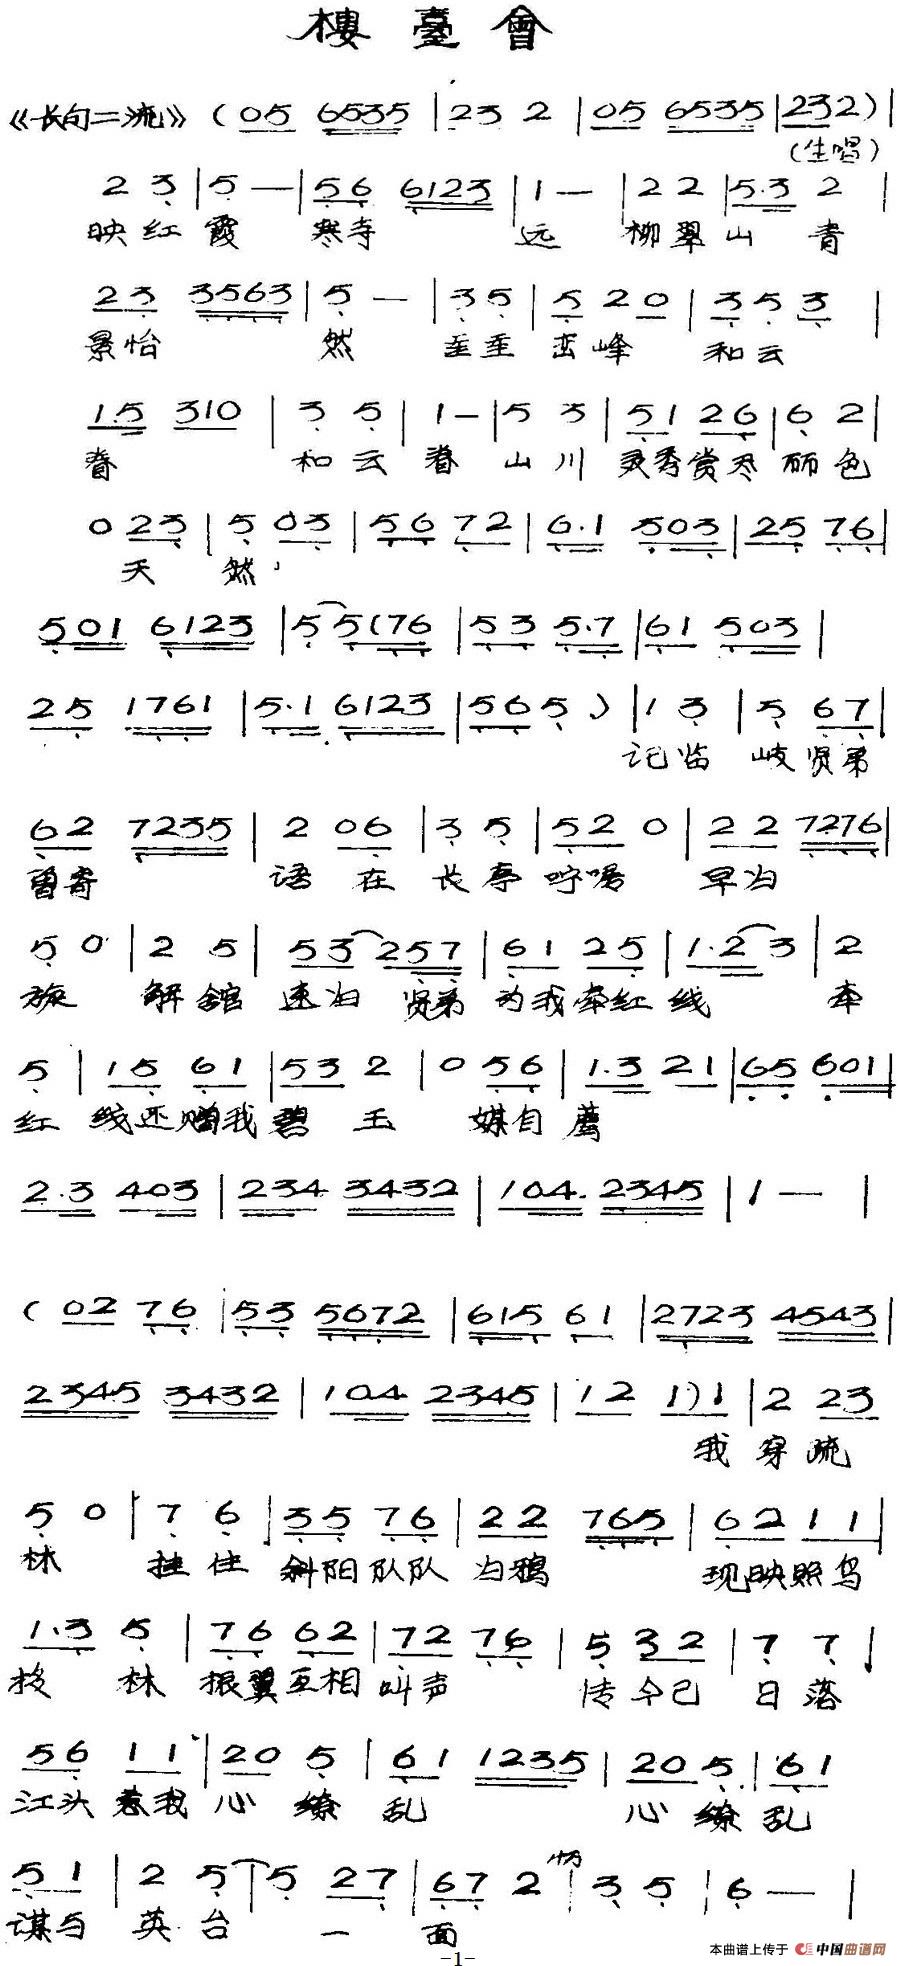 樓臺會
《长句二流》(05 6535 | 23 2 | 05 6535 | 232) |
(生唱)
2 3 | 5 — | 56 6123 | 1 — | 22 | 5·3 2 |
映红霞 寒寺 远 柳翠山 青
23 3563 | 5 — | 35 | 5 20 | 353 |
景怡 然 峦峰 和云
15 310 | 3 5 | 1 — | 5 3 | 51 26 | 6 2 |
脊 和云 脊 山川 灵秀赏尽 丽色
0 23 | 5 03 | 56 72 | 6·1 503 | 25 76 |
天 然
501 6123 | 5 5(76 | 53 5·7 | 61 503 |
25 1761 | 5·1 6123 | 565 ) | 1 3 | 5 67 |
记临 岐贤弟
62 7235 | 2 06 | 3 5 | 52 0 | 22 7276 |
曾寄 语 在 长亭 咛嘱 早归
5 0 | 2 5 | 53 257 | 61 25 | 1·2 3 | 2
旋 解馆 速归 贤弟 为我牵红线 牵
5 | 15 61 | 53 2 | 0 56 | 1·3 21 | 65 601 |
红 线还赠我碧 玉 媒自荐
2·3 403 | 234 3432 | 104 2345 | 1 — |
( 02 76 | 53 5672 | 615 61 | 2723 4543 |
2345 3432 | 104 2345 | 12 1)1 | 2 23
我 穿疏
5 0 | 7 6 | 35 76 | 22 765 | 62 11 |
林 挂住 斜阳队队 归鸦 现映照鸟
1·3 5 | 76 62 | 72 76 | 5 32 | 7 7 |
投 林 振翼互相 叫声 传今已 日落
56 11 | 20 5 | 61 1235 | 20 5 | 61
江头惹我 心 缭 乱 心 缭乱
51 | 2 5 | 5 27 | 67 2 | 3 5 | 6 — |
谋与 英台 一 面
-1-
本曲谱上传于 中国曲谱网